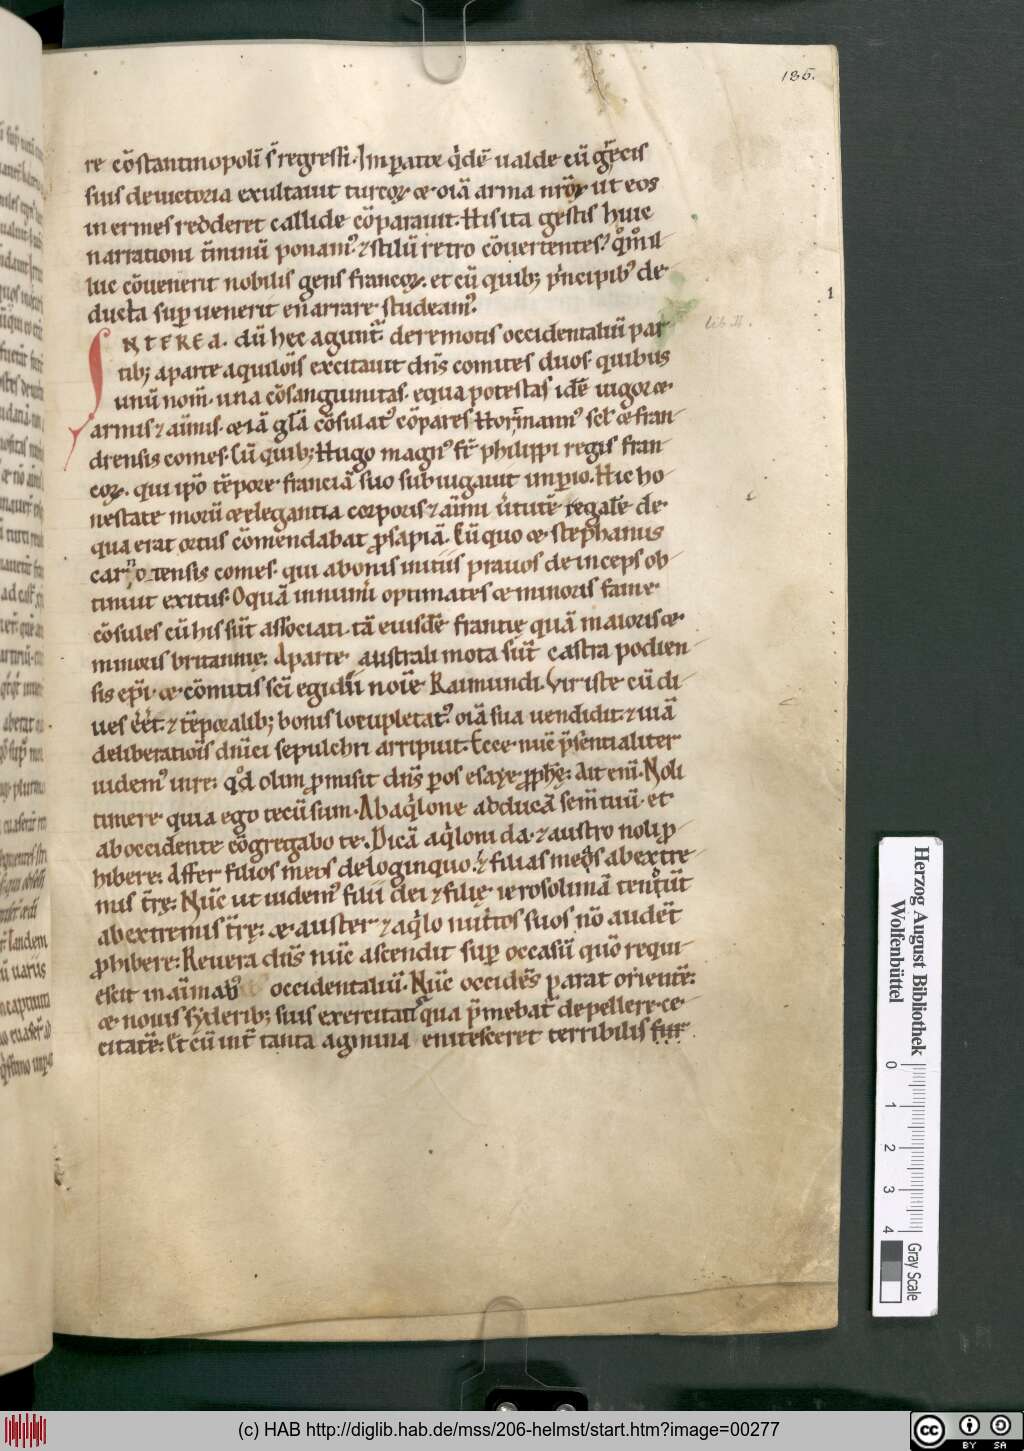 186.
re co̅stantinopoli̅ s̅ regressi. Imꝑator q̇de̅ ualde cu̅ gre̅cis
suis deuictoria exultauit turcoꝝ & oi̅a arma nr̅oꝝ ut eos
in ermes redderet callide co̅parauit. His ita gestis huic
narrationi t̅minu̅ ponam᷒ ⁊ stilu̅ retro co̅uertentes / qͦmͦ il
luc co̅uenerit nobilis gens francoꝝ. et cu̅ quib; p̅ncipib᷒ de
ducta suꝑ uenerit enarrare studeam᷒.
INTEREA. du̅ hec agunt᷒ deremotis occidentaliu̅ par
tib; aparte aquilo̅is excitauit dn̅s comites duos quibus
unu̅ nom̅. una co̅sanguinitas. equa potestas ide̅ uigor &
armis ⁊ ai̅mis. & ia̅ gl̅a̅ co̅sulat᷒ co̅pares Hormann᷒ scl̅. & fran
drensis comes. Cu̅ quib; Hugo magn᷒ fr̅ philippi regis fran
coꝝ. qui ip̅o te̅pore francia̅ suo subiugauit imꝑio. Hic ho
nestate moru̅ & elegantia corporis ⁊ ai̅mi u̇tute̅ regale̅ de
qua erat ortus co̅mendabat ꝓsapia̅. Cu̅ quo & stephanus
carnotensis comes. qui abonis initiis prauos deinceps ob
tinuit exitus. O qua̅ innum̅i optimates & minoris fame
co̅sules cu̅ his su̅t associati. ta̅ eiusde̅ francie qua̅ maioris &
minoris britannie. Aparte australi mota su̅t castra podien
sis ep̅i. & co̅mitis sc̅i egidii noi̅e Raimundi. Vir iste cu̅ di
ues e̅et. ⁊ te̅poralib; bonis locupletat᷒. oi̅a sua uendidit. ⁊ uia̅
deliberatio̅is dn̅ici sepulchri arripuit. Ecce nu̅c p̅sentialiter
uidem᷒ uire: qd̅ olim ꝓmisit dn̅s ꝑ os esaye ꝓph̅e: Ait eni̅. Noli
timere quia ego tecu̅ sum. Ab aq̇lone adduca̅ sem̅ tuu̅. et
ab occidente co̅gregabo te. Dica̅ aq̇loni da. ⁊ austro noli ꝓ
hibere: Affer filios meos de loginquo. ⁊ filias meas ab extre
mis t̅re: Nu̅c ut uidem᷒ filii dei ⁊ filie ierosolima̅ tendu̅t
ab extremis t̅re: & auster ⁊ aq̇lo nu̅tios suos no̅ audet
ꝓhibere: Reuera dn̅s nu̅c ascendit suꝑ occasu̅ quo̅ requi
escit in ai̅mab᷒ occidentaliu̅. Nu̅c occide̅s parat oriente̅:
& nouis syderib; suis exercitati qua p̅mebat᷒ depellere ce
citate̅: Et cu̅ int̅ tanta agmina enitesceret terribilis ful
lib. II.
1
Herzog August Bibliothek
Wolfenbüttel
0 1 2 3 4
Gray Scale
(c) HAB http://diglib.hab.de/mss/206-helmst/start.htm?image=00277
cc BY SA